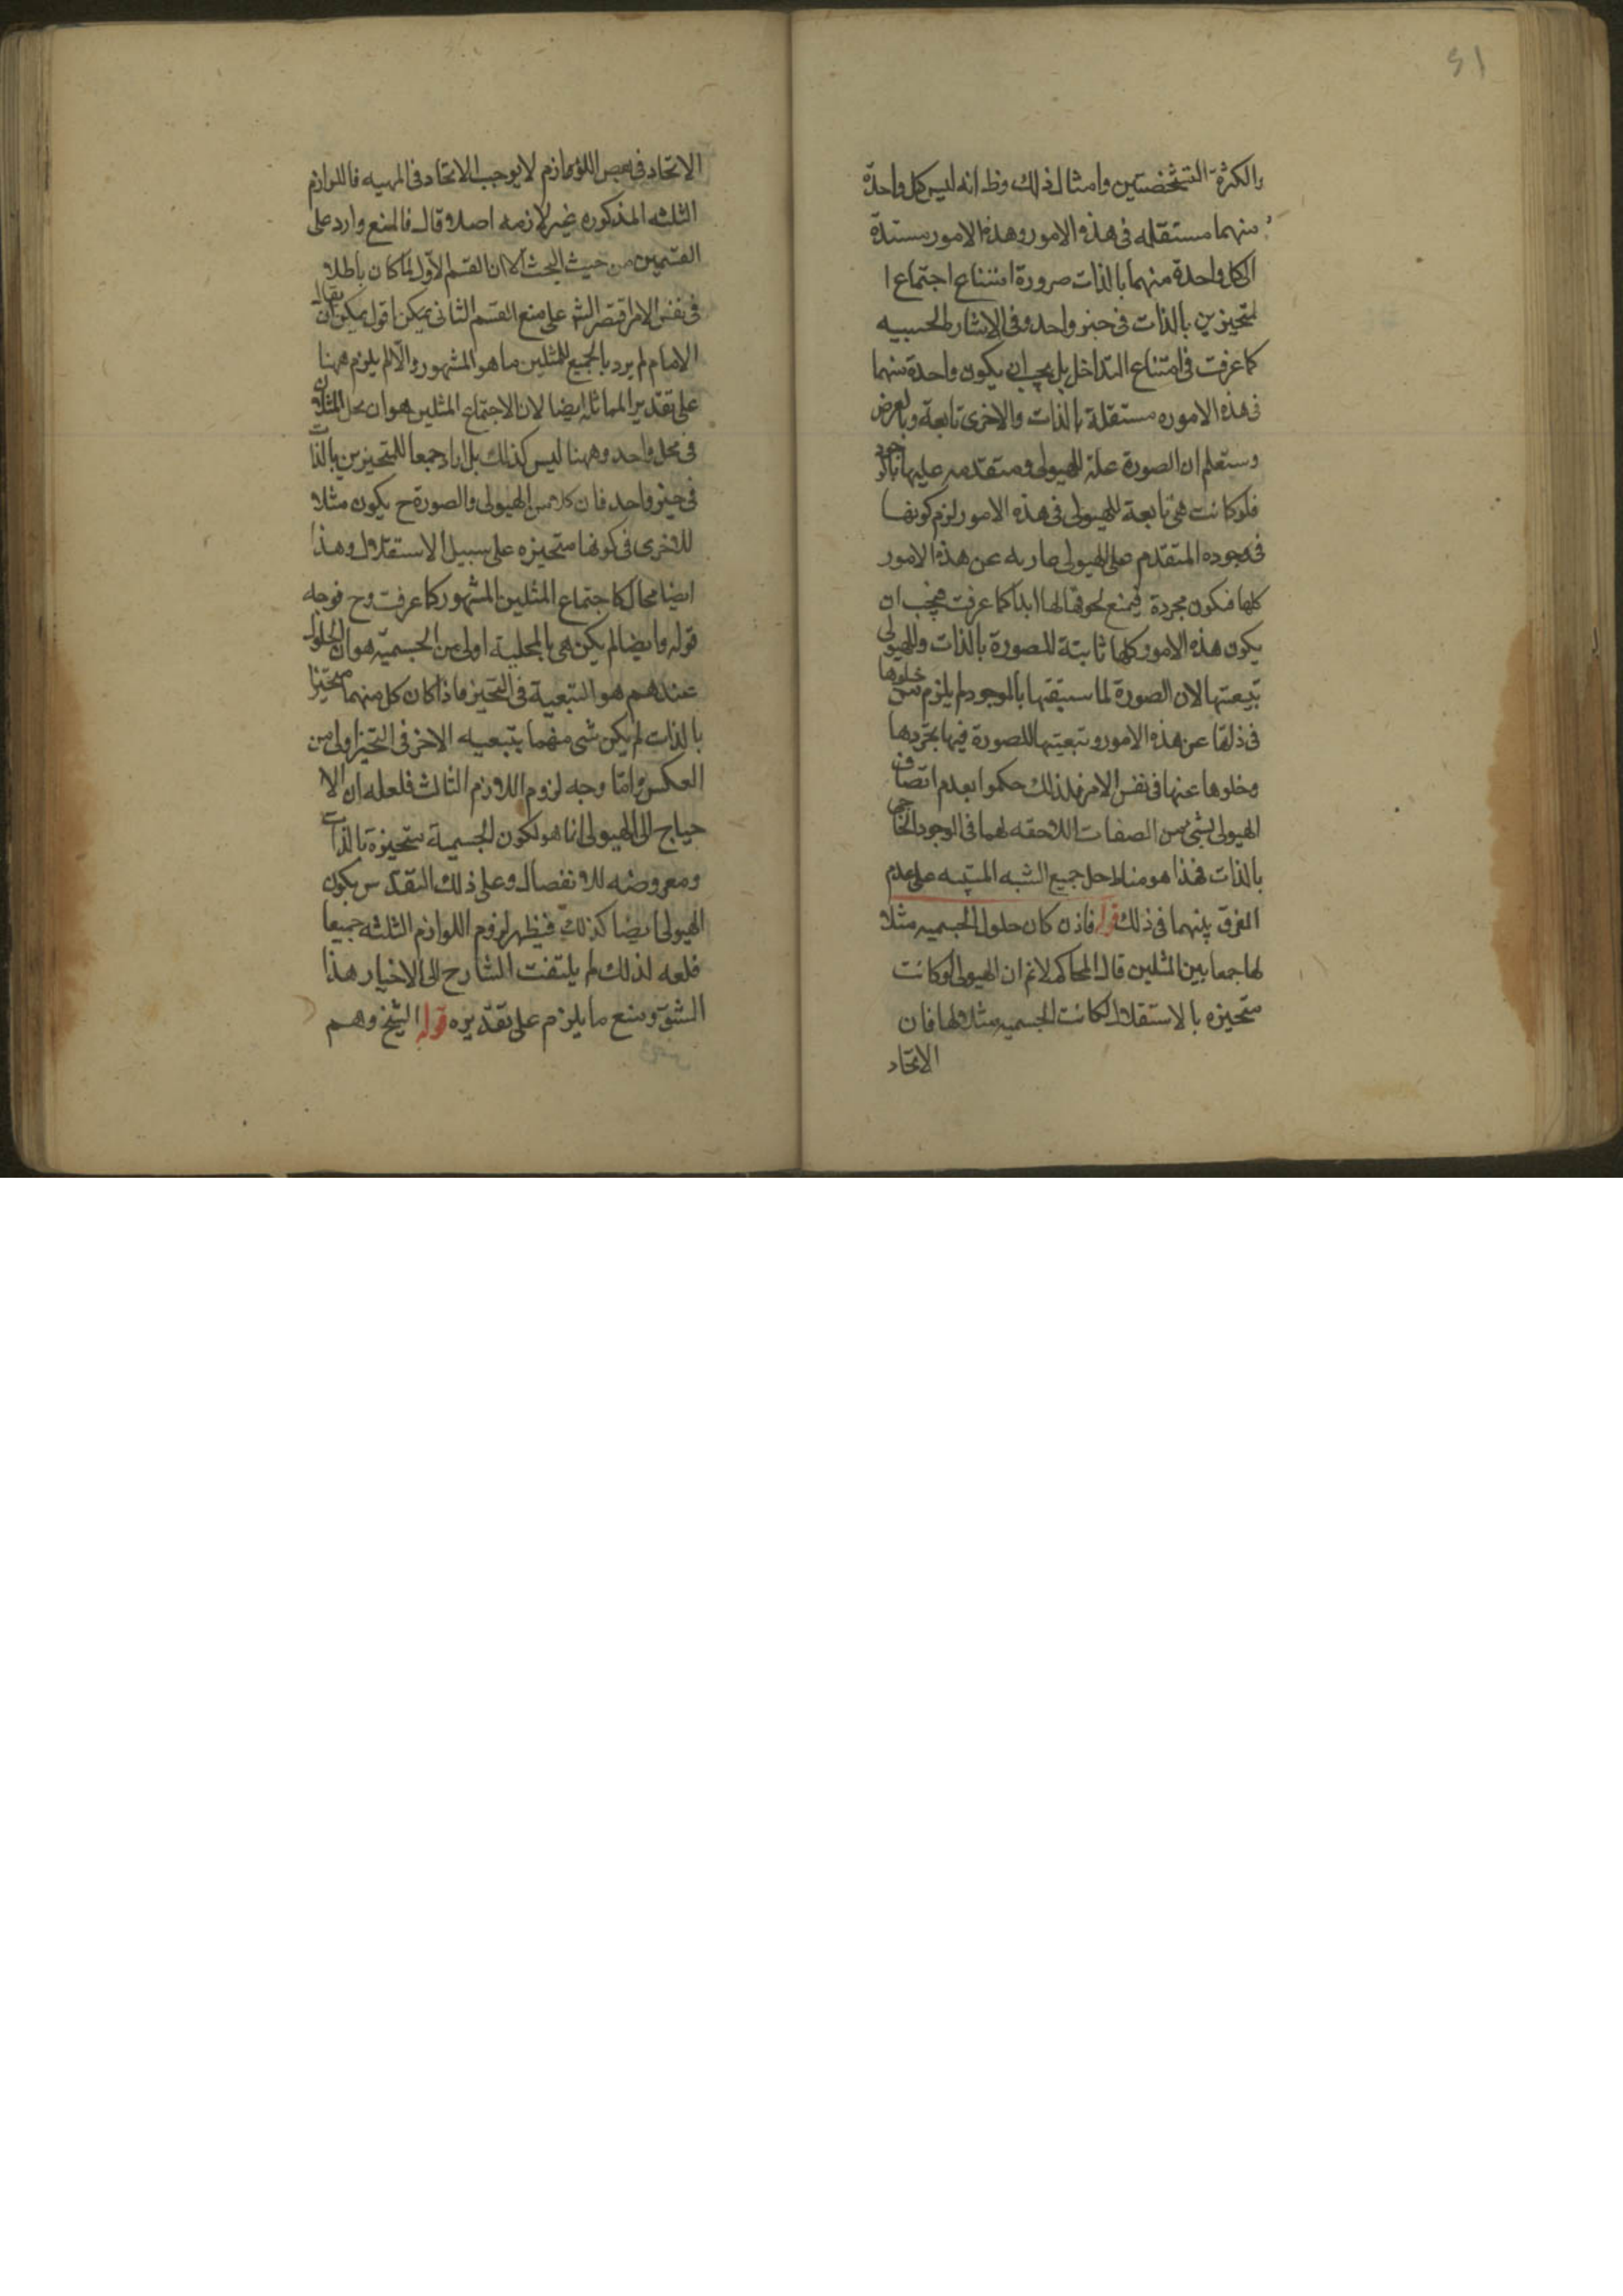 ١٥
والكثرة الشخصيتين وامثال ذلك وظ انه ليس كل واحدة
منهما مستقله فى هذه الامور وهذه الامور مستندة
الى كل واحدة منهما بالذات ضرورة امتناع اجتماع ا
لمتحيزين بالذات فى حيز واحد وفى الاشارة الحسيه
كما عرفت فى امتناع التداخل بل يجب ان يكون واحدة منهما
فى هذه الاموره مستقلة بالذات والاخرى تابعة وبالعرض
وستعلم ان الصورة علة للهيولى ومتقدمه عليها بالوجود
فلو كانت هى تابعة للهيولى فى هذه الامور لزم كونها
فى وجوده المتقدم على الهيولى عاريه عن هذه الامور
كلها فتكون مجردة فيمتنع لحوقها لها ابدا كما عرفت فيجب ان
يكون هذه الامور كلها ثابتة للصورة بالذات وللهيولى
بتبعيتها لان الصورة لما سبقتها بالوجود لم يلزم من خلوها
فى ذاتها عن هذه الامور وتبعيتها للصورة فيها تجردها
وخلوها عنها فى نفس الامر فلذلك حكموا بعدم اتصاف
الهيولى بشئ من الصفات اللاحقه لهما فى الوجود الخارجى
بالذات فهذا هو مناط حل جميع الشبه المبتنيه على عدم
الفرق بينهما فى ذلك قوله فاذن كان حلول الجسميه مثلا
لها جمعا بين المثلين قال المحاكم لانم ان الهيولى لو كانت
متحيزه بالاستقلال لكانت الجسميه مثلا لها فان
الاتحاد
الاتحاد فى بعض اللوازم لا يوجب الاتحاد فى المهيه فاللوازم
الثلثه المذكوره غير لازمه اصلا قال فالمنع وارد على
القسمين من حيث البحث الا ان القسم الاول لما كان باطلا
فى نفس الامر اقتصر الشه على منع القسم الثانى يمكن اقول يمكن ان يقال
الامام لم يرد بالجمع للمثلين ما هو المشهور والا لم يلزم ههنا
على تقدير المماثله ايضا لان الاجتماع المثلين هو ان يحل المثلان
فى محل واحد وههنا ليس كذلك بل اراد جمعا للمتحيزين بالذات
فى حيز واحد فان كلا من الهيولى والصورة ح يكون مثلا
للاخرى فى كونها متحيزه على سبيل الاستقلال وهذا
ايضا محال كاجتماع المثلين المشهور كما عرفت وح فوجه
قوله وايضا لم يكن هى بالمحلية اولى من الجسميه هو ان الحلول
عندهم هو التبعية فى التحيز فاذا كان كل منهما متحيزا
بالذات لم يكن شى منهما بتبعيه الاخر فى التحيز اولى من
العكس واما وجه لزوم اللازم الثالث فلعله ان الا
حياج الى الهيولى انما هو لكون الجسمية متحيزة بالذات
ومعروضه للانفصال وعلى ذلك التقدير يكون
الهيولى ايضا كذلك فيظهر لزوم اللوازم الثلثه جميعا
فلعه لذلك لم يلتفت الشارح الى الاخيار هذا
الشق ومنع ما يلزم على تقديره قوله الشيخ وهم